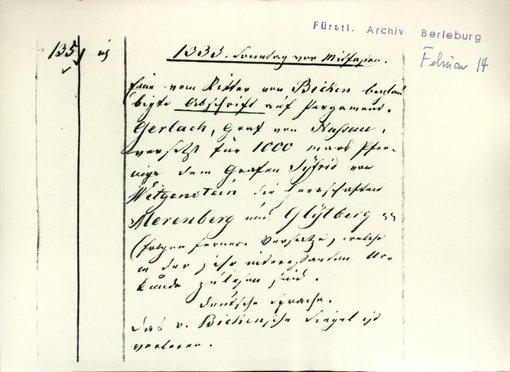 Fürstl. Archiv Berleburg
Februar 14
135)
1333. Sonntag vor Mitfasten.
Eine vom Ritter von Bichen beglau
bigte Abschrift auf Pergament.
Gerlach, Graf von Nassau,
versetzt für 1000 mark Pfen-
nige dem Grafen Syfrid von
Witgenstein die Herrschaften
Merenberg und Glÿlberg
(folgen fernere Versetze, welche
in der sehr interessanten Ur-
kunde zu lesen sind.
Deutsche Sprache.
Das v. Bichensche Siegel ist
verloren.